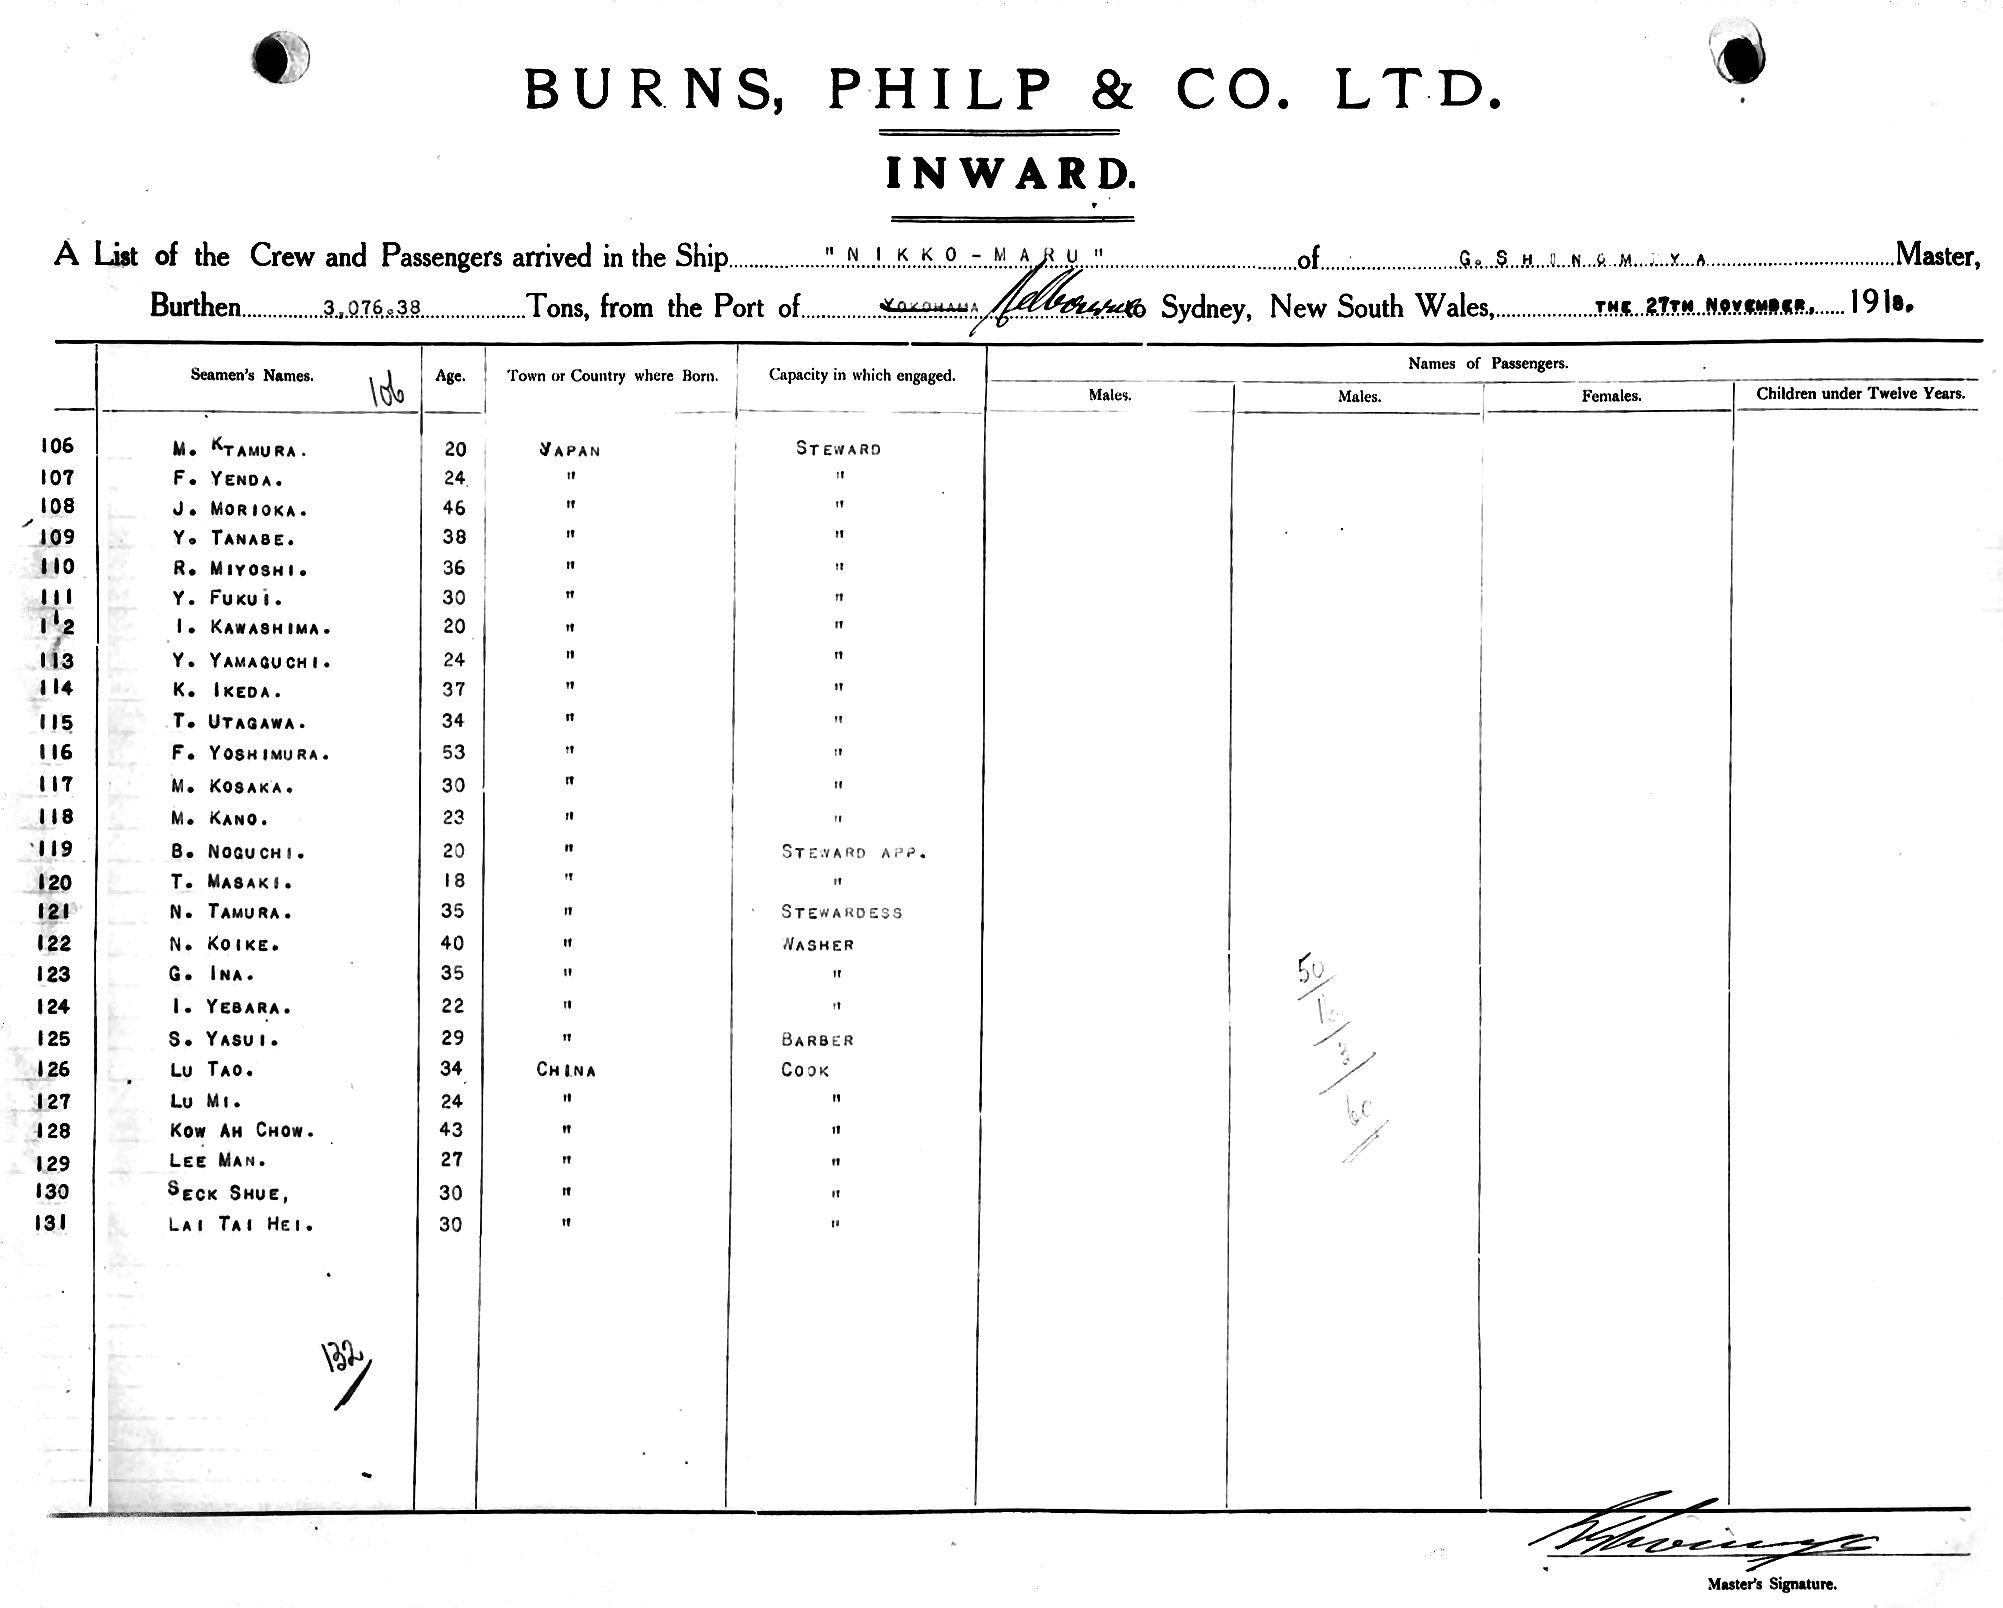 BURNS, PHILP & CO. LTD.
INWARD.
A List of the Crew and Passengers arrived in the Ship "NIKKO-MARU" of G. SHINGMIYA Master,
Burthen 3,076.38 Tons, from the Port of YOKOHAMA Melbourne to Sydney, New South Wales, THE 27TH NOVEMBER, 1918.
Seamen's Names. 106 Age. Town or Country where Born. Capacity in which engaged. Names of Passengers.
Males. Males. Females. Children under Twelve Years.
106 M. KTAMURA. 20 JAPAN STEWARD
107 F. YENDA. 24 " "
108 J. MORIOKA. 46 " "
109 Y. TANABE. 38 " "
110 R. MIYOSHI. 36 " "
111 Y. FUKUI. 30 " "
112 I. KAWASHIMA. 20 " "
113 Y. YAMAGUCHI. 24 " "
114 K. IKEDA. 37 " "
115 T. UTAGAWA. 34 " "
116 F. YOSHIMURA. 53 " "
117 M. KOSAKA. 30 " "
118 M. KANO. 23 " "
119 B. NOGUCHI. 20 " STEWARD APP.
120 T. MASAKI. 18 " "
121 N. TAMURA. 35 " STEWARDESS
122 N. KOIKE. 40 " WASHER
123 G. INA. 35 " "
124 I. YEBARA. 22 " "
125 S. YASUI. 29 " BARBER
126 LU TAO. 34 CHINA COOK
127 LU MI. 24 " "
128 KOW AH CHOW. 43 " "
129 LEE MAN. 27 " "
130 SECK SHUE, 30 " "
131 LAI TAI HEI. 30 " "
50/
3/
60
132/
Master's Signature.